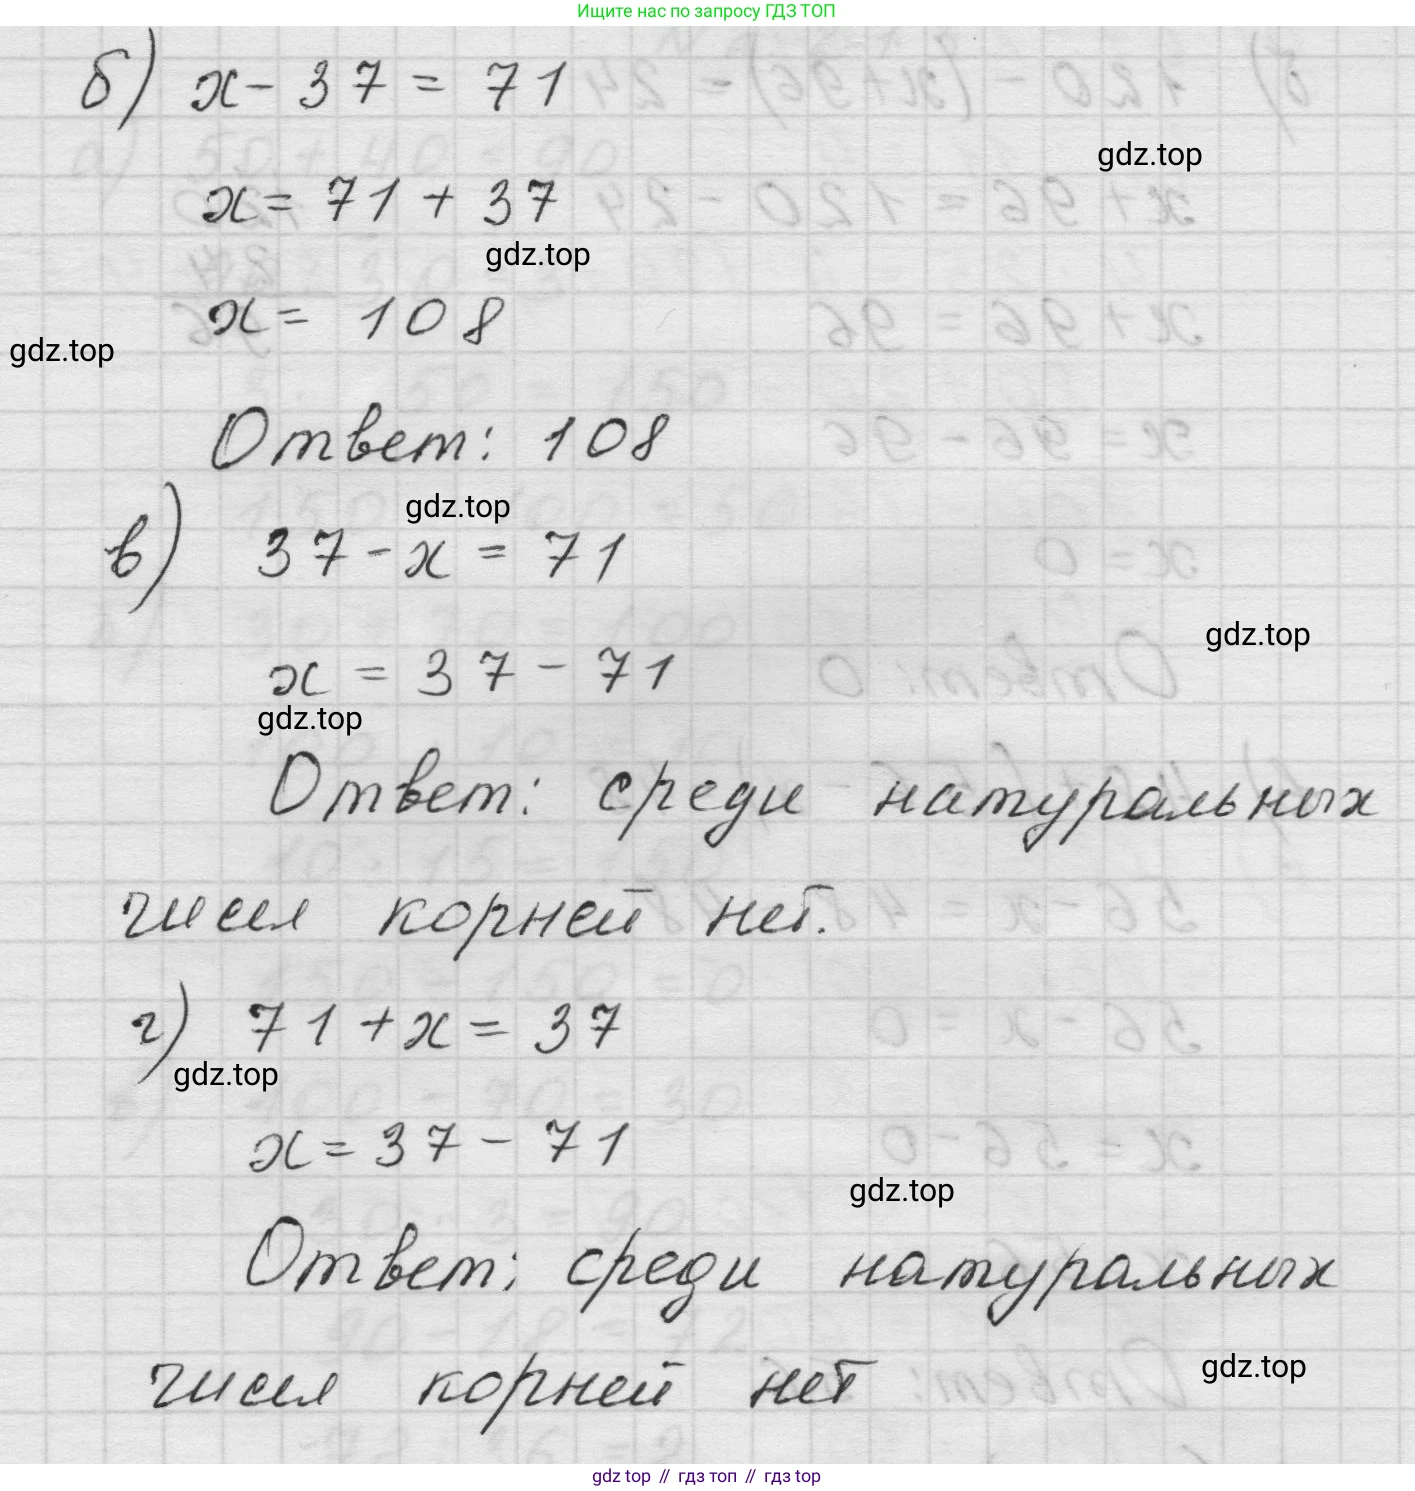 Ищите нас по запросу ГДЗ ТОП
б) x - 37 = 71
gdz.top
x = 71 + 37
gdz.top
x = 108
gdz.top
Ответ: 108
gdz.top
в) 37 - x = 71
gdz.top
x = 37 - 71
gdz.top
Ответ: среди натуральных
чисел корней нет.
г) 71 + x = 37
gdz.top
x = 37 - 71
gdz.top
Ответ: среди натуральных
gdz.top
чисел корней нет
gdz top // гдз топ // gdz top